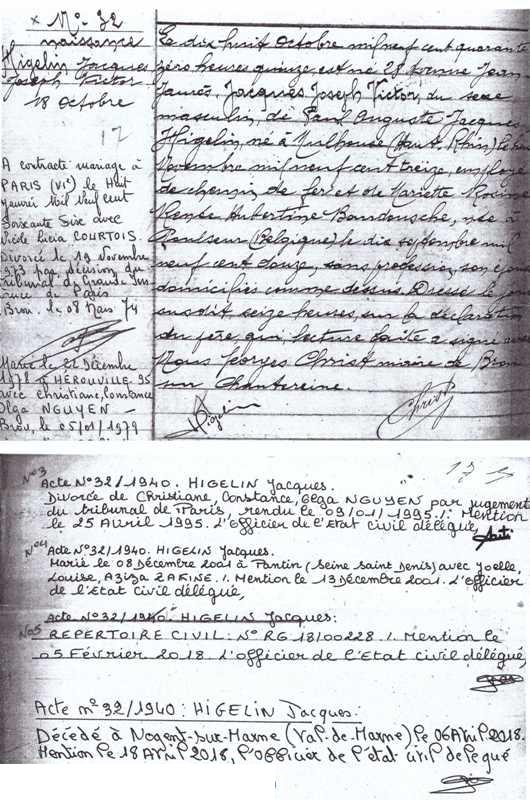 × N° 32
naissance
Higelin, Jacques
Joseph Victor
18 octobre
17
A contracté mariage à
PARIS (VIe) le Huit
Janvier Mil neuf cent
Soixante Six avec
Nicole Lucia COURTOIS.
Divorcé le 19 Novembre
1973 par décision du
Tribunal de Grande Ins-
tance de Paris
Brou. le 08 Mars 74
Marié le 22 Décembre
1978 à HÉROUVILLE 95
avec Christiane, Constance
Olga NGUYEN —
Brou, le 05/01/1979
Le dix huit Octobre mil neuf cent quarante
zéro heures quinze est né 28 avenue Jean
Jaurès, Jacques Joseph Victor, du sexe
masculin, de Paul Auguste Jacques
Higelin, né à Mulhouse (Haut Rhin) le
Novembre mil neuf cent treize, employé
de chemin de fer et de Mariette Rosine
Renée Hubertine Boudouche, née à
(Belgique) le dix septembre mil
neuf cent douze, sans profession, son épouse
domiciliés comme dessus. Dressé le jour
susdit seize heures, sur la déclaration
du père, qui lecture faite a signé avec
Nous Georges Christ maire de Brou
sur Chantereine.
Higelin Christ
N°3
Acte N°32/1940. HIGELIN Jacques.
Divorcé de Christiane, Constance, Olga NGUYEN par jugement
du tribunal de Paris, rendu le 09/01/1995./. Mention
le 25 Avril 1995. L'Officier de l'Etat civil délégué,
N°4
Acte N°32/1940. HIGELIN Jacques.
Marié le 08 Décembre 2001 à Pantin (Seine Saint Denis) avec Yoelle,
Louise, Aziza ZAFINE./. Mention le 13 Décembre 2001. L'Officier
de l'Etat civil délégué,
Acte N°32/1940. HIGELIN Jacques:
N°5 REPERTOIRE CIVIL: N° RG 18/00228./. Mention le
05 Février 2018. L'officier de l'Etat civil délégué,
Acte n°32/1940: HIGELIN Jacques:
Décédé à Nogent-sur-Marne (Val-de-Marne) le 06 Avril 2018.
Mention le 18 Avril 2018, l'officier de l'état civil délégué